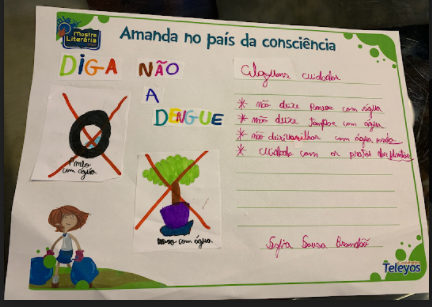 Mostra
Literária
Amanda no país da consciência
DIGA NÃO
A
DENGUE
Alguns cuidados
* não deixe Pneus com água
* não deixe tampas com água
* não deixe vasilhas com água
* cuidado com os pratos das plantas
Pneu
com água
Vaso com água
Sousa Brandão
Teleyos